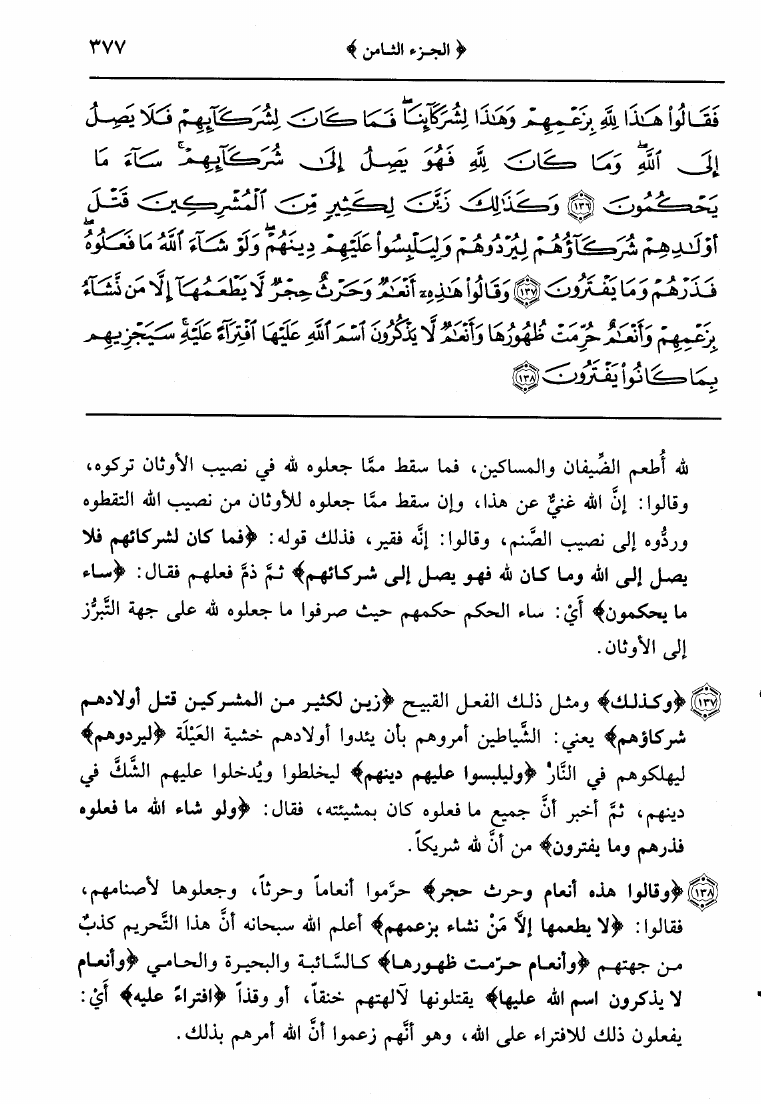 ﴿ الجزء الثامن ﴾ ٣٧٧
فَقَالُوا۟ هَٰذَا لِلَّهِ بِزَعْمِهِمْ وَهَٰذَا لِشُرَكَآئِنَا ۖ فَمَا كَانَ لِشُرَكَآئِهِمْ فَلَا يَصِلُ
إِلَى ٱللَّهِ ۖ وَمَا كَانَ لِلَّهِ فَهُوَ يَصِلُ إِلَىٰ شُرَكَآئِهِمْ ۗ سَآءَ مَا
يَحْكُمُونَ ﴿١٣٦﴾ وَكَذَٰلِكَ زَيَّنَ لِكَثِيرٍ مِّنَ ٱلْمُشْرِكِينَ قَتْلَ
أَوْلَٰدِهِمْ شُرَكَآؤُهُمْ لِيُرْدُوهُمْ وَلِيَلْبِسُوا۟ عَلَيْهِمْ دِينَهُمْ ۖ وَلَوْ شَآءَ ٱللَّهُ مَا فَعَلُوهُ ۖ
فَذَرْهُمْ وَمَا يَفْتَرُونَ ﴿١٣٧﴾ وَقَالُوا۟ هَٰذِهِۦٓ أَنْعَٰمٌ وَحَرْثٌ حِجْرٌ لَّا يَطْعَمُهَآ إِلَّا مَن نَّشَآءُ
بِزَعْمِهِمْ وَأَنْعَٰمٌ حُرِّمَتْ ظُهُورُهَا وَأَنْعَٰمٌ لَّا يَذْكُرُونَ ٱسْمَ ٱللَّهِ عَلَيْهَا ٱفْتِرَآءً عَلَيْهِ ۚ سَيَجْزِيهِم
بِمَا كَانُوا۟ يَفْتَرُونَ ﴿١٣٨﴾
لله أُطعم الضِّيفان والمساكين، فما سقط ممَّا جعلوه لله في نصيب الأوثان تركوه،
وقالوا: إنَّ الله غنيٌّ عن هذا، وإن سقط ممَّا جعلوه للأوثان من نصيب الله التقطوه
وردُّوه إلى نصيب الصَّنم، وقالوا: إنَّه فقير، فذلك قوله: ﴿فما كان لشركائهم فلا
يصل إلى الله وما كان لله فهو يصل إلى شركائهم﴾ ثمَّ ذمَّ فعلهم فقال: ﴿ساء
ما يحكمون﴾ أَيْ: ساء الحكم حكمهم حيث صرفوا ما جعلوه لله على جهة التَّبرُّز
إلى الأوثان.
﴿١٣٧﴾ ﴿وكذلك﴾ ومثل ذلك الفعل القبيح ﴿زين لكثير من المشركين قتل أولادهم
شركاؤهم﴾ يعني: الشَّياطين أمروهم بأن يئدوا أولادهم خشية العَيْلَة ﴿ليردوهم﴾
ليهلكوهم في النَّار ﴿وليلبسوا عليهم دينهم﴾ ليخلطوا ويُدخلوا عليهم الشَّكَّ في
دينهم، ثمَّ أخبر أنَّ جميع ما فعلوه كان بمشيئته، فقال: ﴿ولو شاء الله ما فعلوه
فذرهم وما يفترون﴾ من أنَّ لله شريكاً.
﴿١٣٨﴾ ﴿وقالوا هذه أنعام وحرث حجر﴾ حرَّموا أنعاماً وحرثاً، وجعلوها لأصنامهم،
فقالوا: ﴿لا يطعمها إلاَّ مَنْ نشاء بزعمهم﴾ أعلم الله سبحانه أنَّ هذا التَّحريم كذبٌ
من جهتهم ﴿وأنعام حرّمت ظهورها﴾ كالسَّائبة والبحيرة والحامي ﴿وأنعام
لا يذكرون اسم الله عليها﴾ يقتلونها لآلهتهم خنقاً، أو وقذاً ﴿افتراءً عليه﴾ أَيْ:
يفعلون ذلك للافتراء على الله، وهو أنَّهم زعموا أنَّ الله أمرهم بذلك.